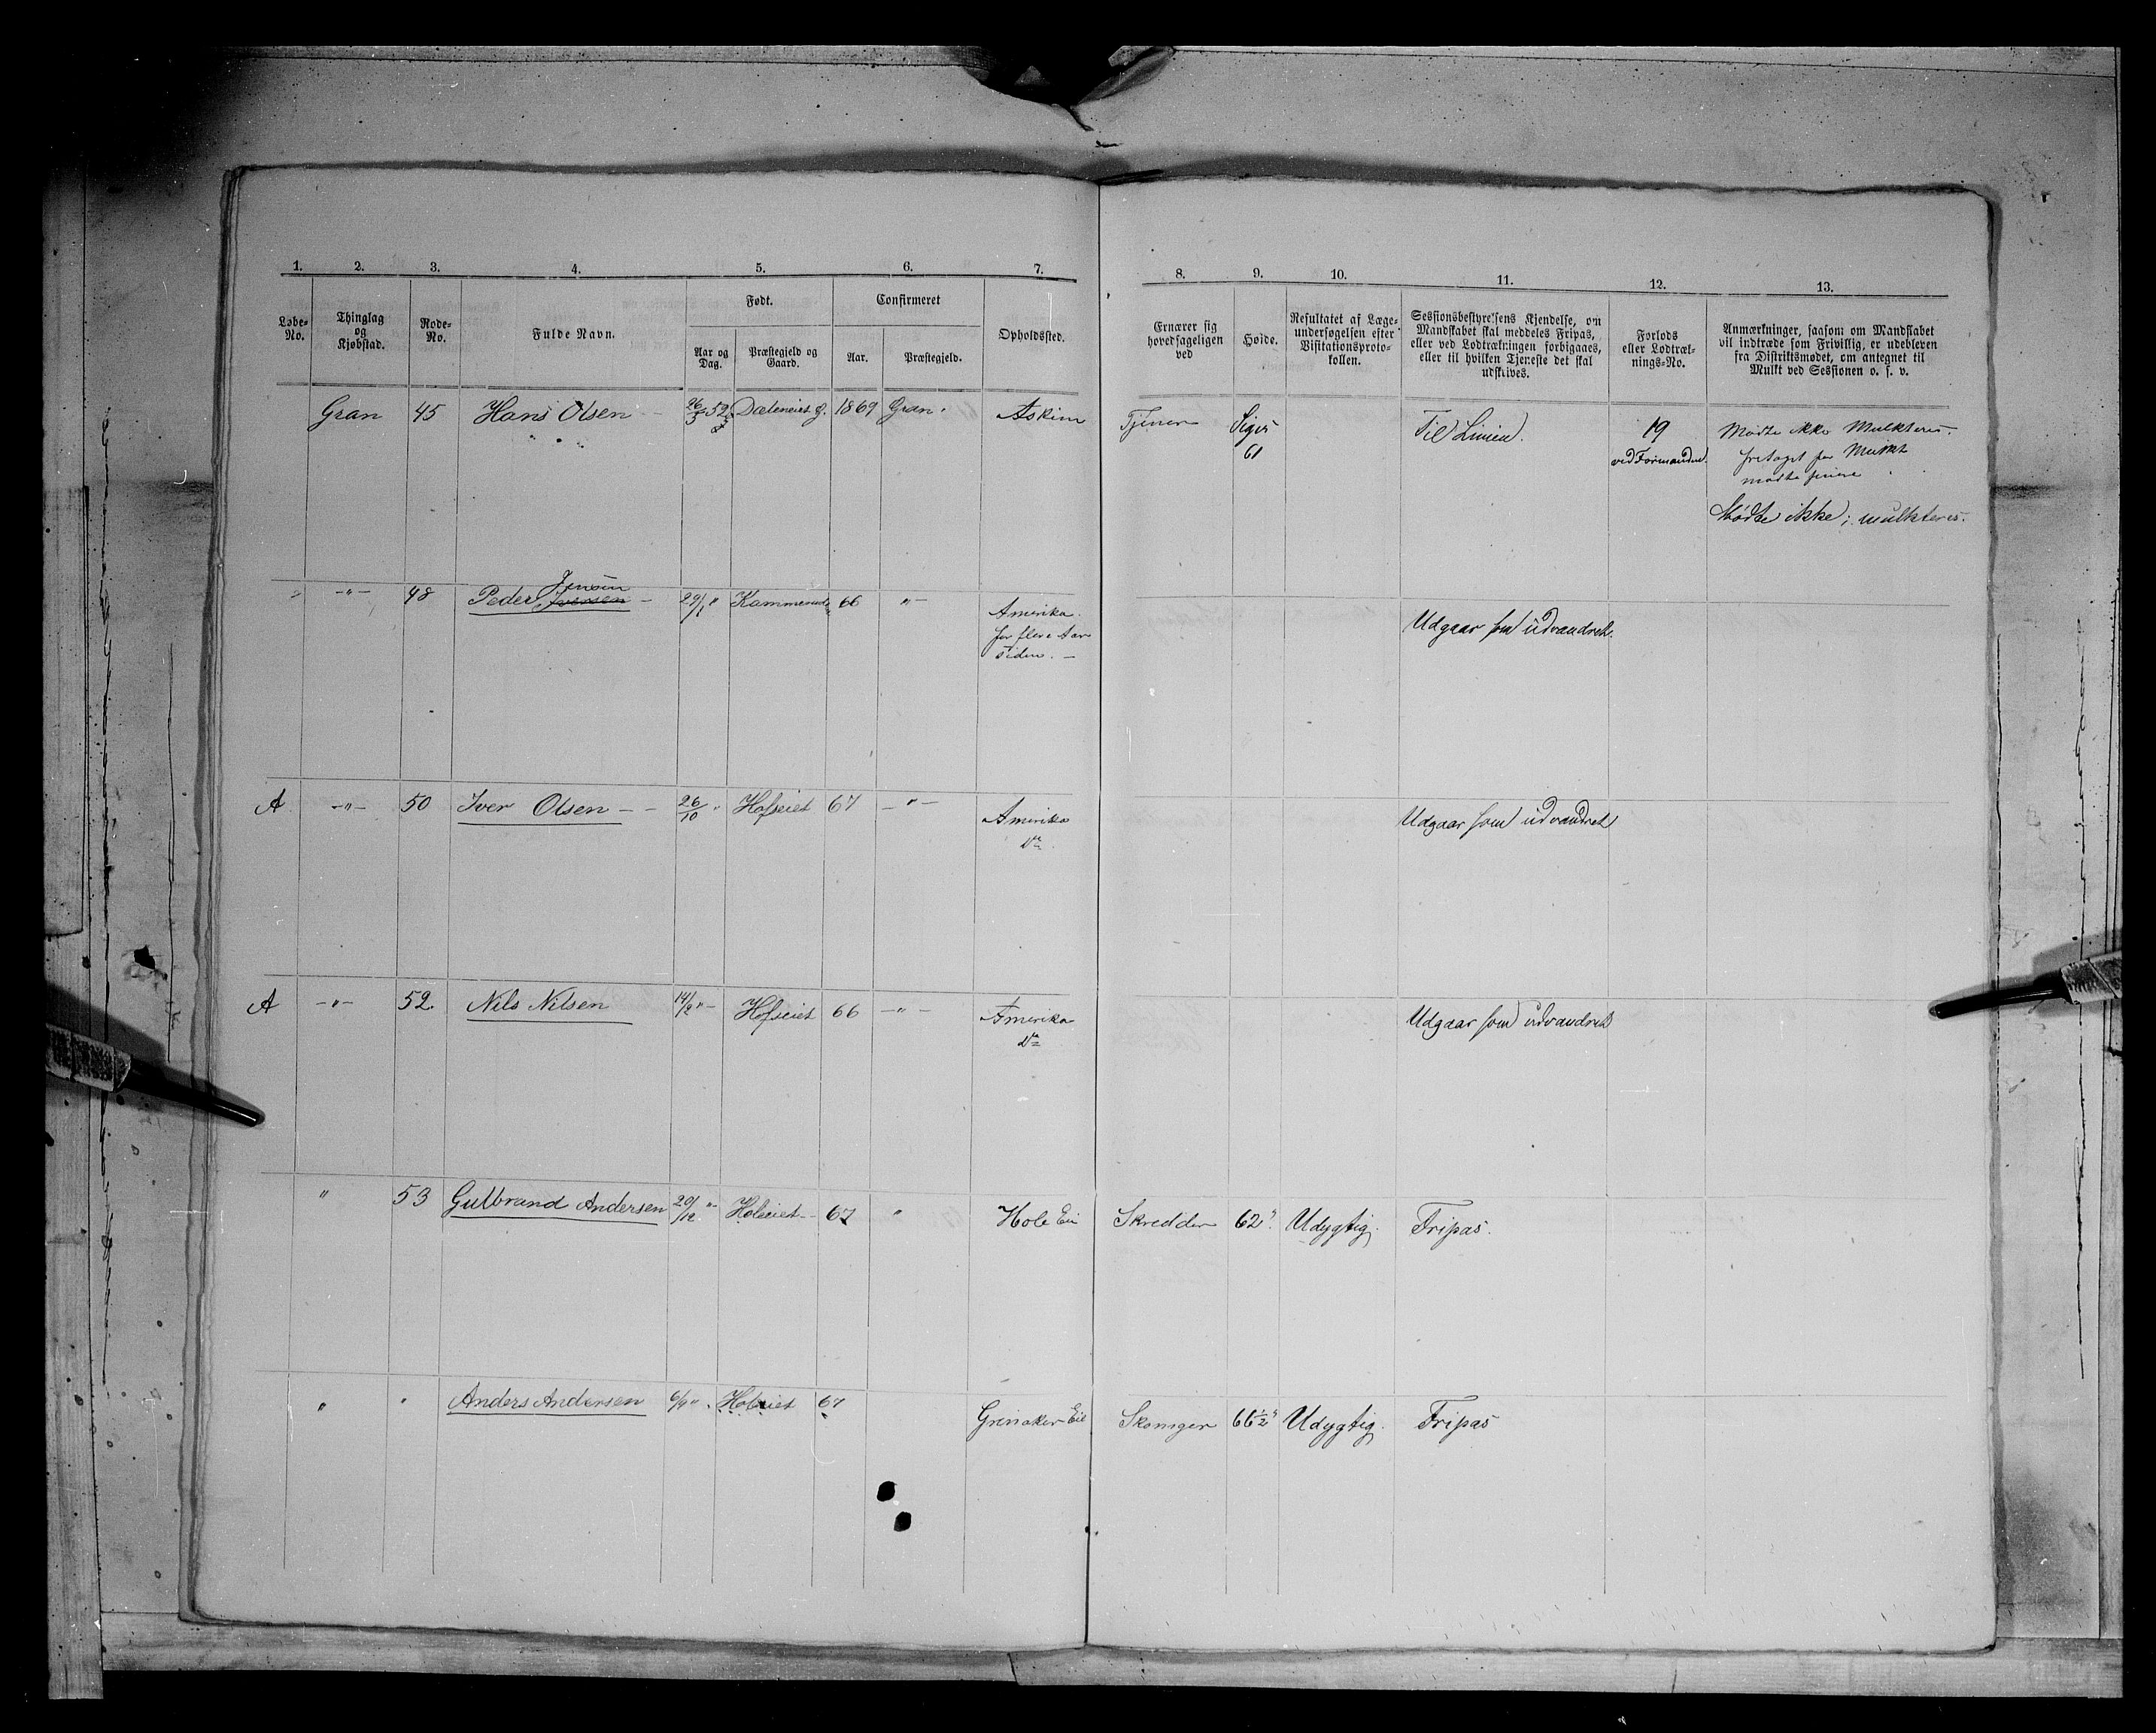 1. 2. 3. 4. 5. 6. 7. 8. 9. 10. 11. 12. 13.
Løbe-No.
Thinglag og Kjøbstad.
Rode-No.
Fulde Navn.
Født.
Aar og Dag.
Præstegjeld og Gaard.
Confirmeret
Aar.
Præstegjeld.
Opholdssted.
Ernærer sig hovedsageligen ved
Høide.
Resultatet af Lægeundersøgelsen efter Visitationsprotokollen.
Sessionsbestyrelsens Kjendelse, om Mandskabet skal meddeles Fripas, eller ved Lodtrækningen forbigaaes, eller til hvilken Tjeneste det skal udskrives.
Forlods eller Lodtræknings-No.
Anmærkninger, saasom om Mandskabet vil indtræde som Frivillig, er udebleven fra Distriktsmødet, om antegnet til Mulkt ved Sessionen o. s. v.
Gran 45 Hans Olsen 26/5 52 1869 Gran. Askim Tjener Siger 61 Til Linien. 19 Mødte ikke Mulkteres.
ved Formanden.
fritaget for Mulkt
mødte
Mødte ikke; mulkteres.
" -"- 48 Peder Iversen Jensen 29/1 " 66 "- Amerika Udgaar som udvandret.
for flere Aar
siden. -
A -"- 50 Iver Olsen - - 26/10 " Hofseiet 67 -"- Amerika Udgaar som udvandret
do
A -"- 52. Nils Nilsen 14/2 "- Hofseiet 66 -"- Amerika Udgaar som udvandret
do
" 53 Gulbrand Andersen 20/12 "- Holeiet - 67 " Hole Eie Skredder 62". Udygtig. Fripas.
" " Anders Andersen 6/9 " . 67 Grinaker Eie Skomager 66½" Udygtig. Fripas